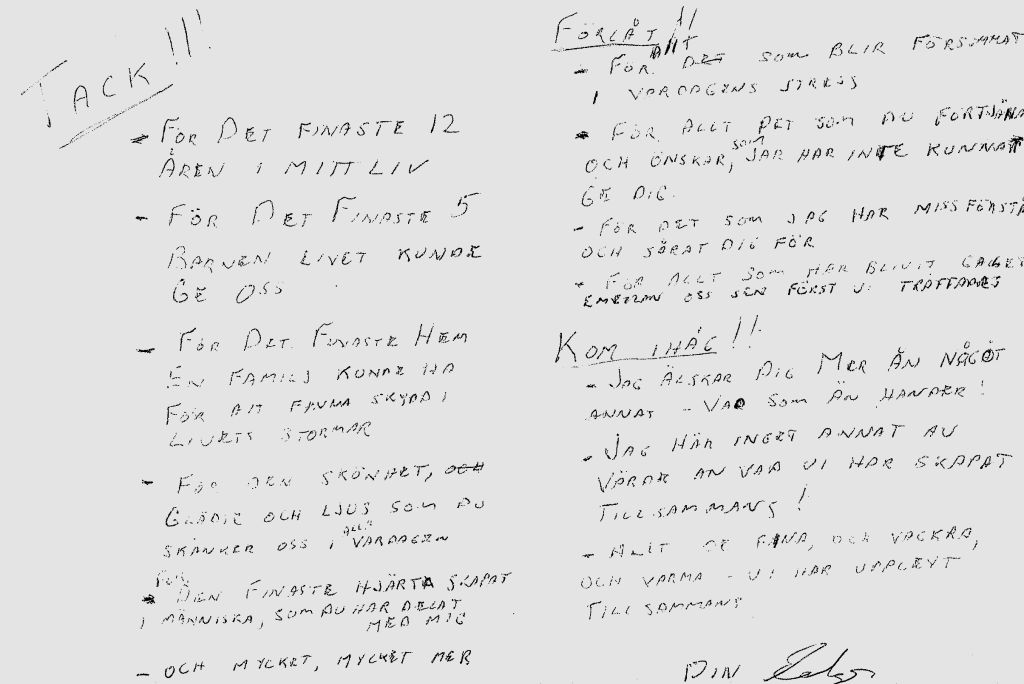 TACK!!!
- FÖR DET FINASTE 12
ÅREN I MITT LIV
- FÖR DET FINASTE 5
BARNEN LIVET KUNDE
GE OSS
- FÖR DET FINASTE HEM
EN FAMILJ KUNDE HA
FÖR ATT FINNA SKYDD I
LIVETS STORMAR
- FÖR DEN SKÖNHET, OCH
GLÄDJE OCH LJUS SOM DU
SKÄNKER OSS I ALLA VARDAGEN
- FÖR DEN FINASTE HJÄRTA SKAPAT
I MÄNNISKA, SOM DU HAR DELAT
MED MIG
- OCH MYCKET, MYCKET MER
FÖRLÅT!!
- FÖR ALLT DET SOM BLIR FÖRSUMMAT
I VARDAGENS STRESS
- FÖR ALLT DET SOM DU FÖRTJÄNA
OCH ÖNSKAR, SOM JAG HAR INTE KUNNAT
GE DIG.
- FÖR DET SOM JAG HAR MISSFÖRSTÅ
OCH SÅRAT DIG FÖR
- FÖR ALLT SOM HAR BLIVIT
EMELLAN OSS SEN FÖRST VI TRÄFFADES
KOM IHÅG!!
- JAG ÄLSKAR DIG MER ÄN NÅGOT
ANNAT - VAD SOM ÄN HÄNDER!
- JAG HAR INGET ANNAT AV
VÄRDE ÄN VAD VI HAR SKAPAT
TILLSAMMANS!
- ALLT DE FINA, OCH VACKRA,
OCH VARMA - VI HAR UPPLEVT
TILLSAMMANS
DIN